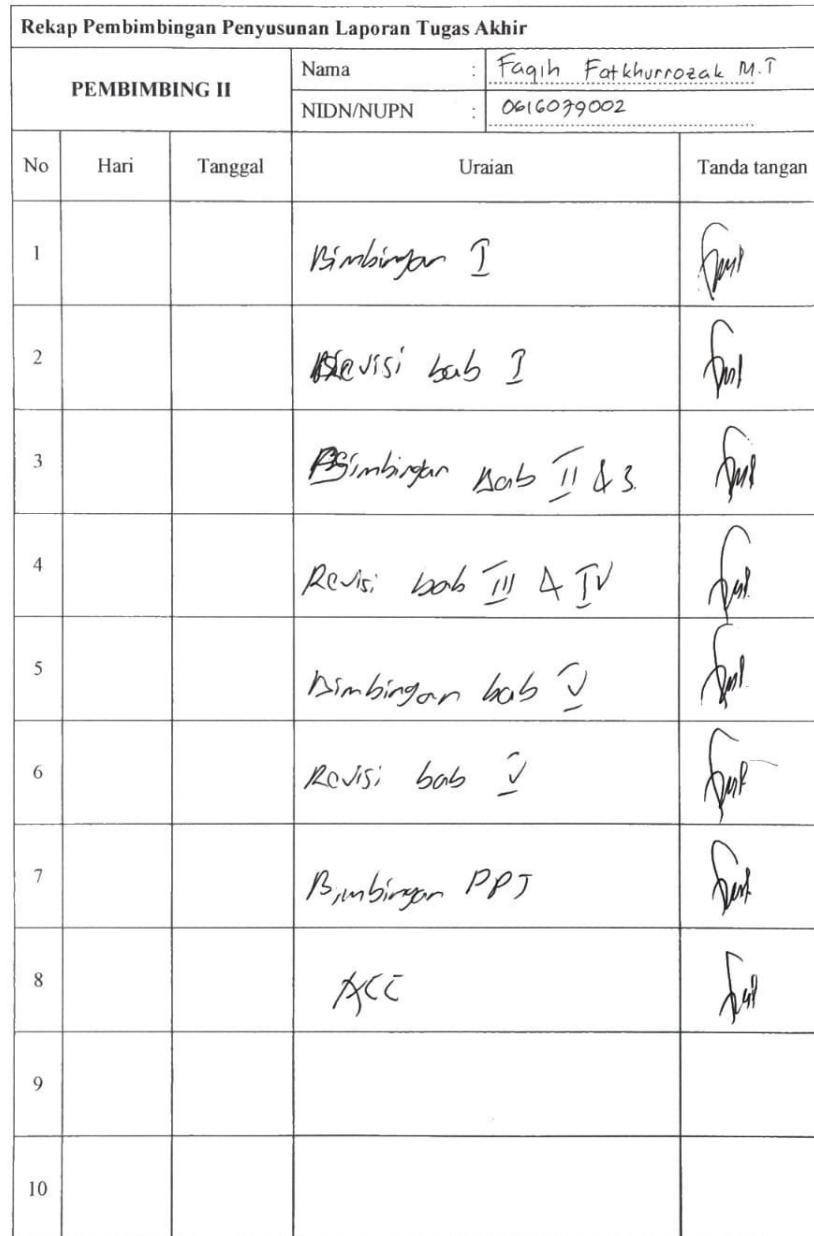 Rekap Pembimbingan Penyusunan Laporan Tugas Akhir
PEMBIMBING II
Nama : Faqih Fatkhurrozak M.T
NIDN/NUPN : 0616079002
No Hari Tanggal Uraian Tanda tangan
1 Bimbingan I
2 Revisi bab I
3 Bimbingan Bab II & 3
4 Revisi bab III & IV
5 Bimbingan bab V
6 Revisi bab V
7 Bimbingan PPT
8 ACC
9
10